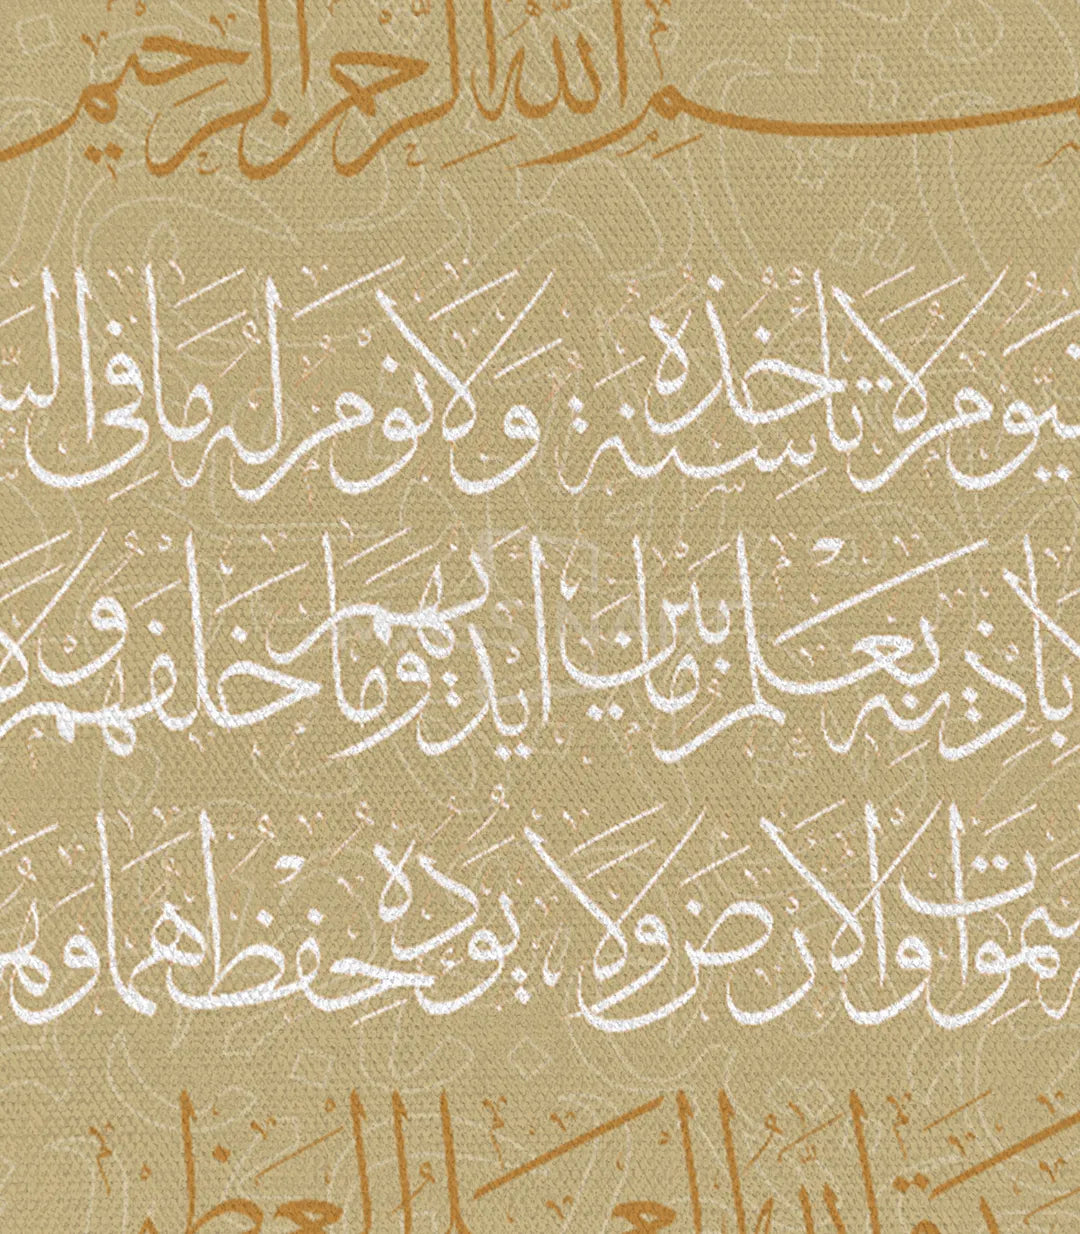 ـسم الله الرحمن الرحيم
ـيوم لا تأخذه سنة ولا نوم له ما في السـ
لا بإذنه يعلم ما بين أيديهم وما خلفهم ولا
ـسموات والأرض ولا يؤده حفظهما وهو
ـدق الله العلي العظيم